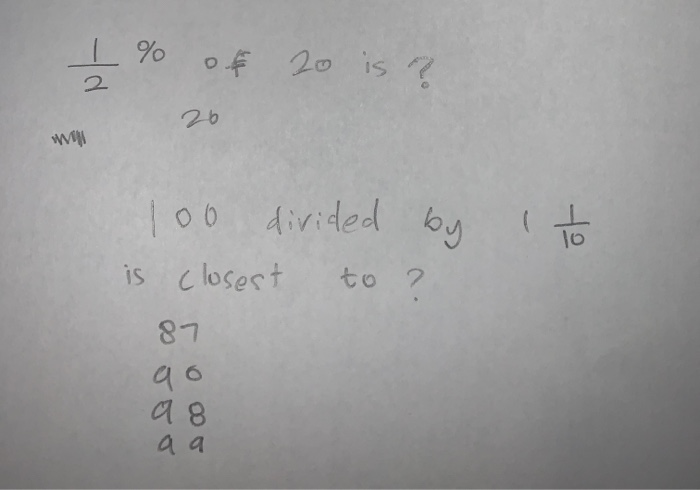 1/2 % of 20 is ?
20
100 divided by 1 1/10
is closest to ?
87
90
98
99